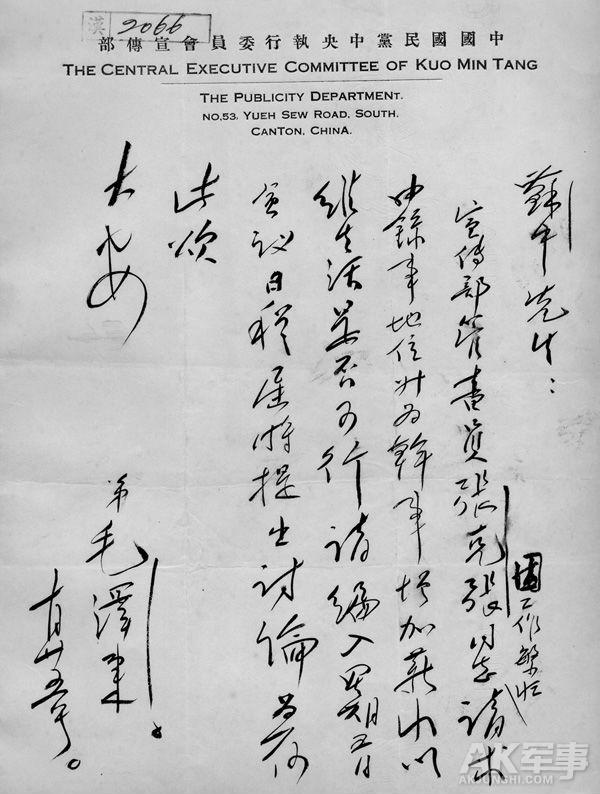 漢 2066
中國國民黨中央執行委員會宣傳部
THE CENTRAL EXECUTIVE COMMITTEE OF KUO MIN TANG
THE PUBLICITY DEPARTMENT.
NO.53, YUEH SEW ROAD, SOUTH.
CANTON, CHINA.
先生：
宣傳部管書員張克張同志因工作繁忙請求
由錄事地位升為幹事增加薪水以
維生活是否可行請編入
會議日程屆時提出討論為荷
此頌
大安
弟毛澤東。
廿五号。
AK军事
AKJUNSHI.COM